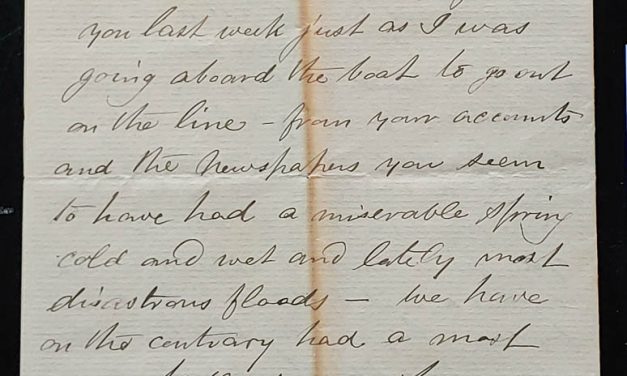 you last week just as I was
going aboard the boat to go out
on the line - from your accounts
and the newspapers you seem
to have had a miserable spring
cold and wet and lately most
disastrous floods - we have
on the contrary had a most